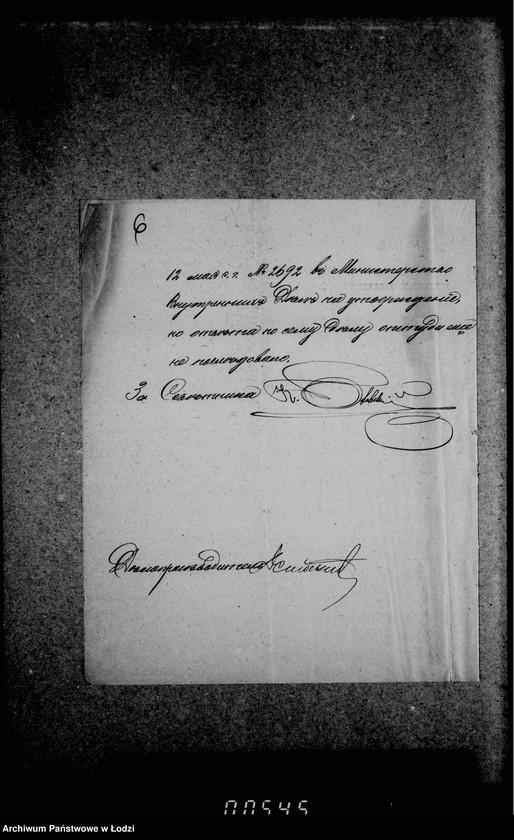 6
12 мая с. г. № 2692 въ Министерство
Внутреннихъ Делъ на утвержденіе,
но ответа по сему делу оттуда еще
не последовало.
За Советника
Делопроизводитель
00545
Archiwum Państwowe w Łodzi